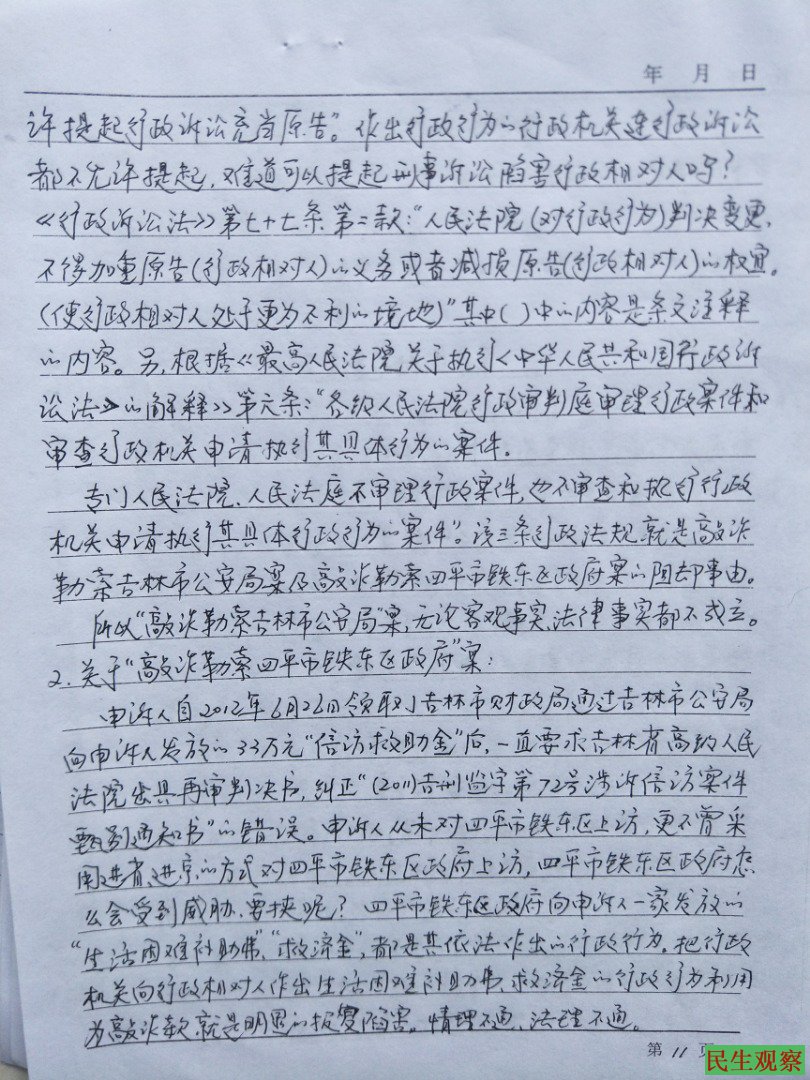 年 月 日
许提起行政诉讼充当原告”。作出行政行为的行政机关连行政诉讼
都不允许提起,难道可以提起刑事诉讼陷害行政相对人吗?
《行政诉讼法》第七十七条第二款:“人民法院(对行政行为)判决变更,
不得加重原告(行政相对人)的义务或者减损原告(行政相对人)的权宜。
(使行政相对人处于更为不利的境地)”其中( )中的内容是条文注释
的内容。另,根据《最高人民法院关于执行<中华人民共和国行政诉
讼法》的解释》第六条:“各级人民法院行政审判庭审理行政案件和
审查行政机关申请执行其具体行为的案件。
专门人民法院、人民法庭不审理行政案件,也不审查和执行行政
机关申请执行其具体行政行为的案件”。该三条行政法规就是敲诈
勒索吉林市公安局案及敲诈勒索四平市铁东区政府案的阻却事由。
所以“敲诈勒索吉林市公安局”案,无论客观事实、法律事实都不成立。
2.关于“敲诈勒索四平市铁东区政府”案:
申诉人自2012年6月26日领取了吉林市财政局通过吉林市公安局
向申诉人发放的33万元“信访救助金”后,一直要求吉林省高级人民
法院出具再审判决书,纠正“(2011)吉刑监字第72号涉诉信访案件
甄别通知书”的错误。申诉人从未对四平市铁东区上访,更不曾采
用进省、进京的方式对四平市铁东区政府上访,四平市铁东区政府怎
么会受到威胁、要挟呢?四平市铁东区政府向申诉人一家发放的
“生活困难补助费”、“救济金”,都是其依法作出的行政行为。把行政
机关向行政相对人作出生活困难补助费、救济金的行政行为利用
为敲诈款就是明显的报复陷害。情理不通、法理不通。
第 11 页
民生观察